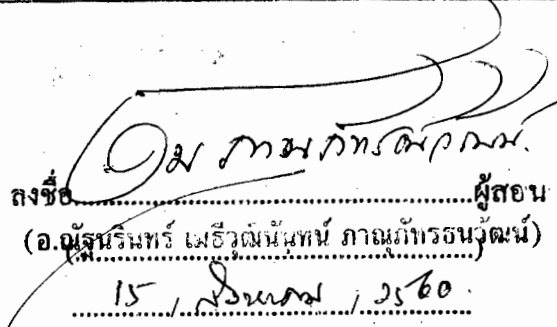 ลงชื่อ ผู้สอน
(อ.ณัฐนรินทร์ เมธีวุฒินันทน์ ภาณุภัทรธนวัฒน์)
15 / สิงหาคม / 2560